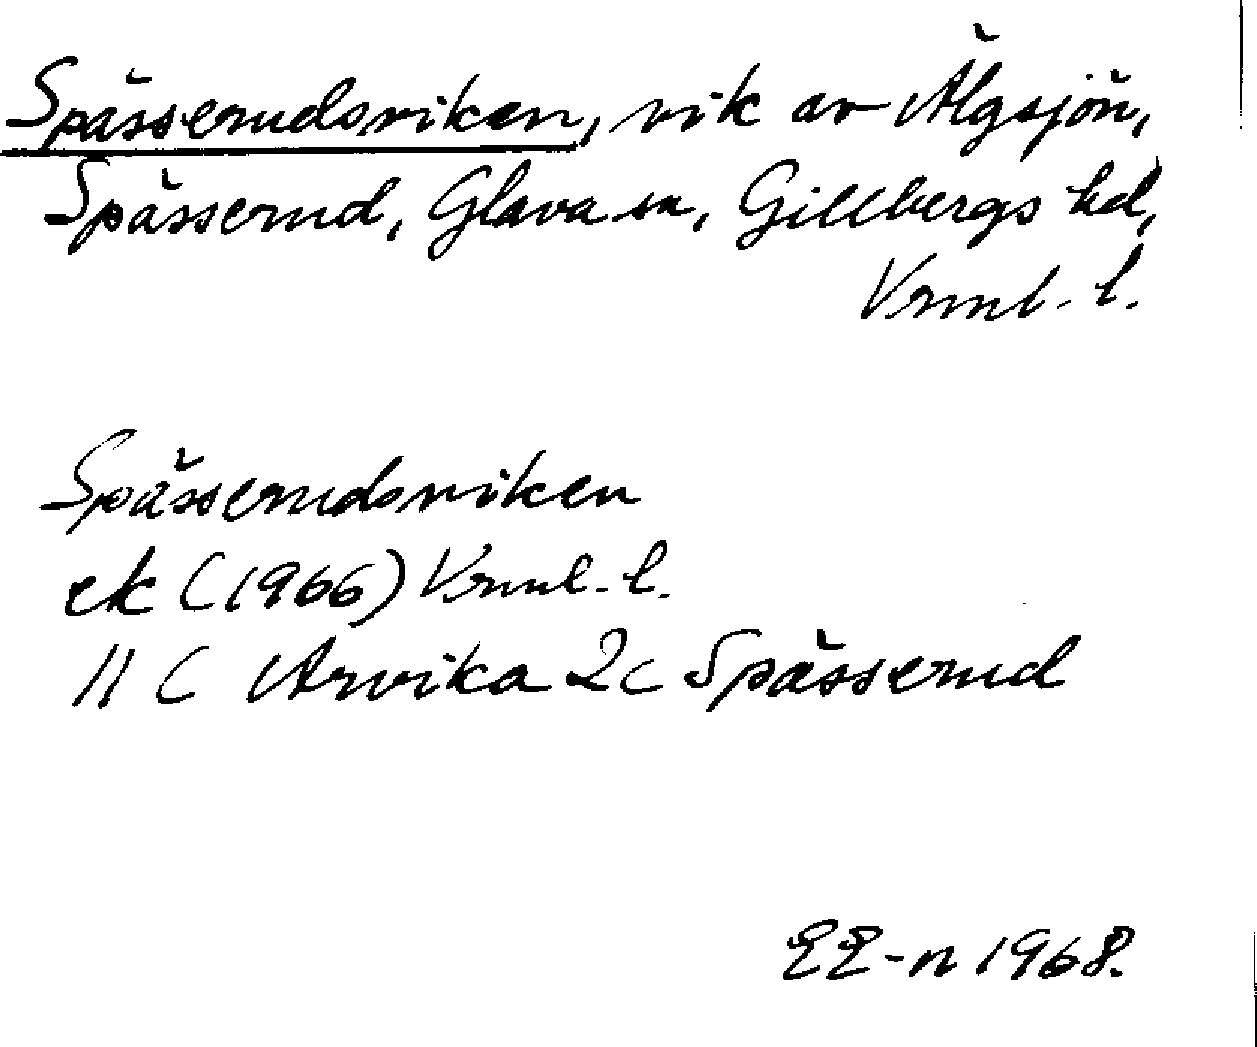 Spässerudsviken, vik av Älgsjön,
Spässerud, Glava sn, Gillbergs hd,
Vrml. l.
Spässerudsviken
ek (1966) Vrml. l.
11 C Arvika 2c Spässerud
EE-n 1968.